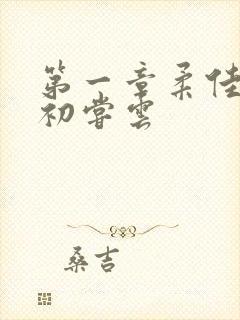 第一章柔佳
初尝云
桑吉